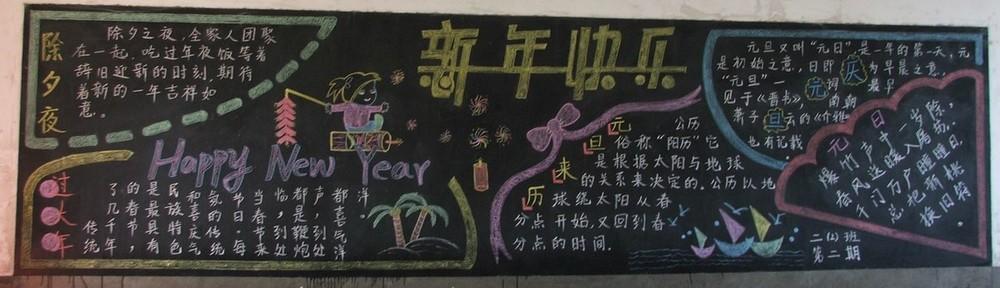 除夕夜
除夕之夜,全家人团聚
在一起,吃过年夜饭等着
辞旧迎新的时刻,期待
着新的一年吉祥如
意。
新年快乐
Happy New Year
过大年
了的是民和节当临都声都洋
几春最族喜日春都是,喜
千节具特文传节是鞭到气
年,有色气统每来处炮处洋
传统
元旦来历
公历
俗称“阳历”它
是根据太阳与地球
的关系来决定的。公历以地
球绕太阳从春
分点开始,又回到春
分点的时间.
元旦又叫“元日”,是一年的第一天,元
是初始之意,日即 为早晨之意.
“元旦”一 元 词 最早
见于《晋书》, 南朝
萧子 旦 云的《介雅 也有记载
元日
爆竹声中一岁除,
春风送暖入屠苏.
千门万户瞳瞳日.
总把新桃
换旧符
二(2)班
第二期